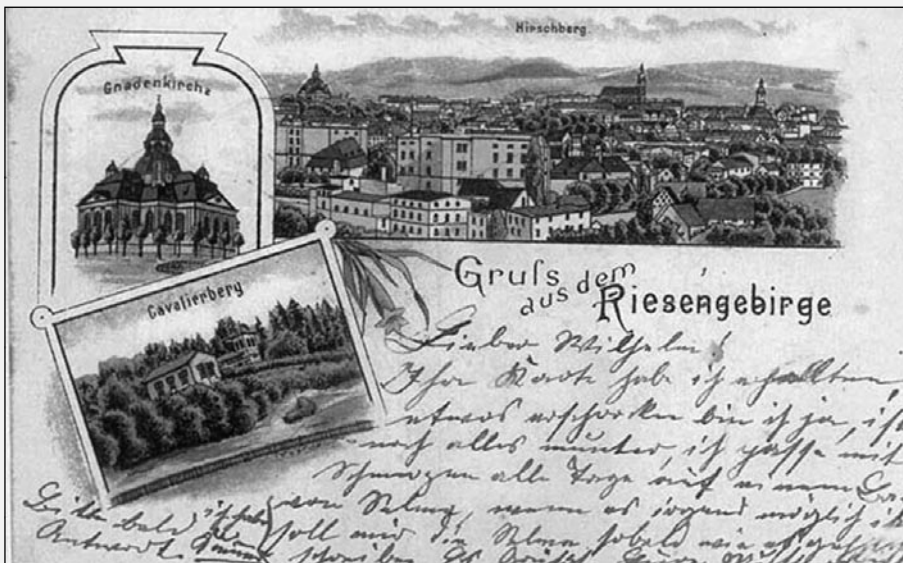 Hirschberg.
Gnadenkirche
Cavalierberg
Gruss
aus dem
Riesengebirge
Lieber Wilhelm!
Ihre Karte hab ich erhallten,
etwas erschrocken bin ich ja, ist
noch alles munter, ich passe mit
Schmerzen alle Tage auf einem
von Selma, wenn es irgend möglich ist
soll mir die Selma sobald wie es geht
schreiben Es grüsst
Bitte bald
Antwort.
ich habe